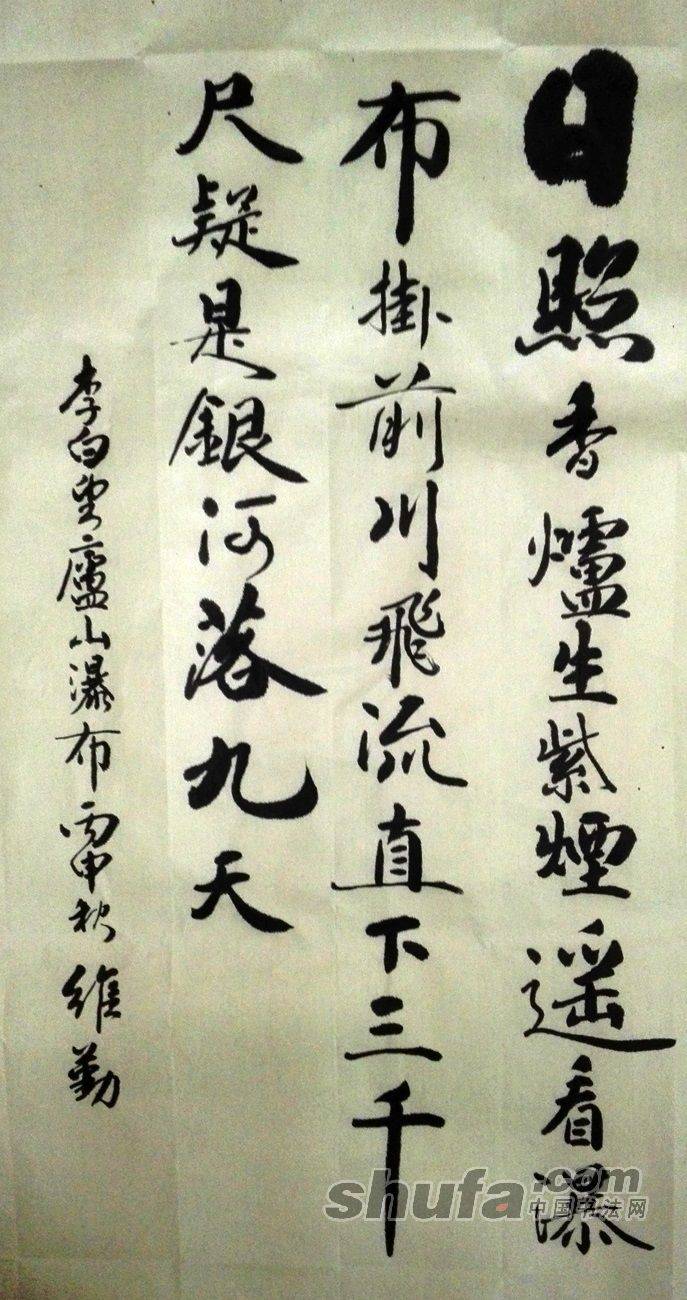 日照香爐生紫煙遥看瀑
布掛前川飛流直下三千
尺疑是銀河落九天
李白望廬山瀑布丙申秋維勤
shufa.com
中国书法网